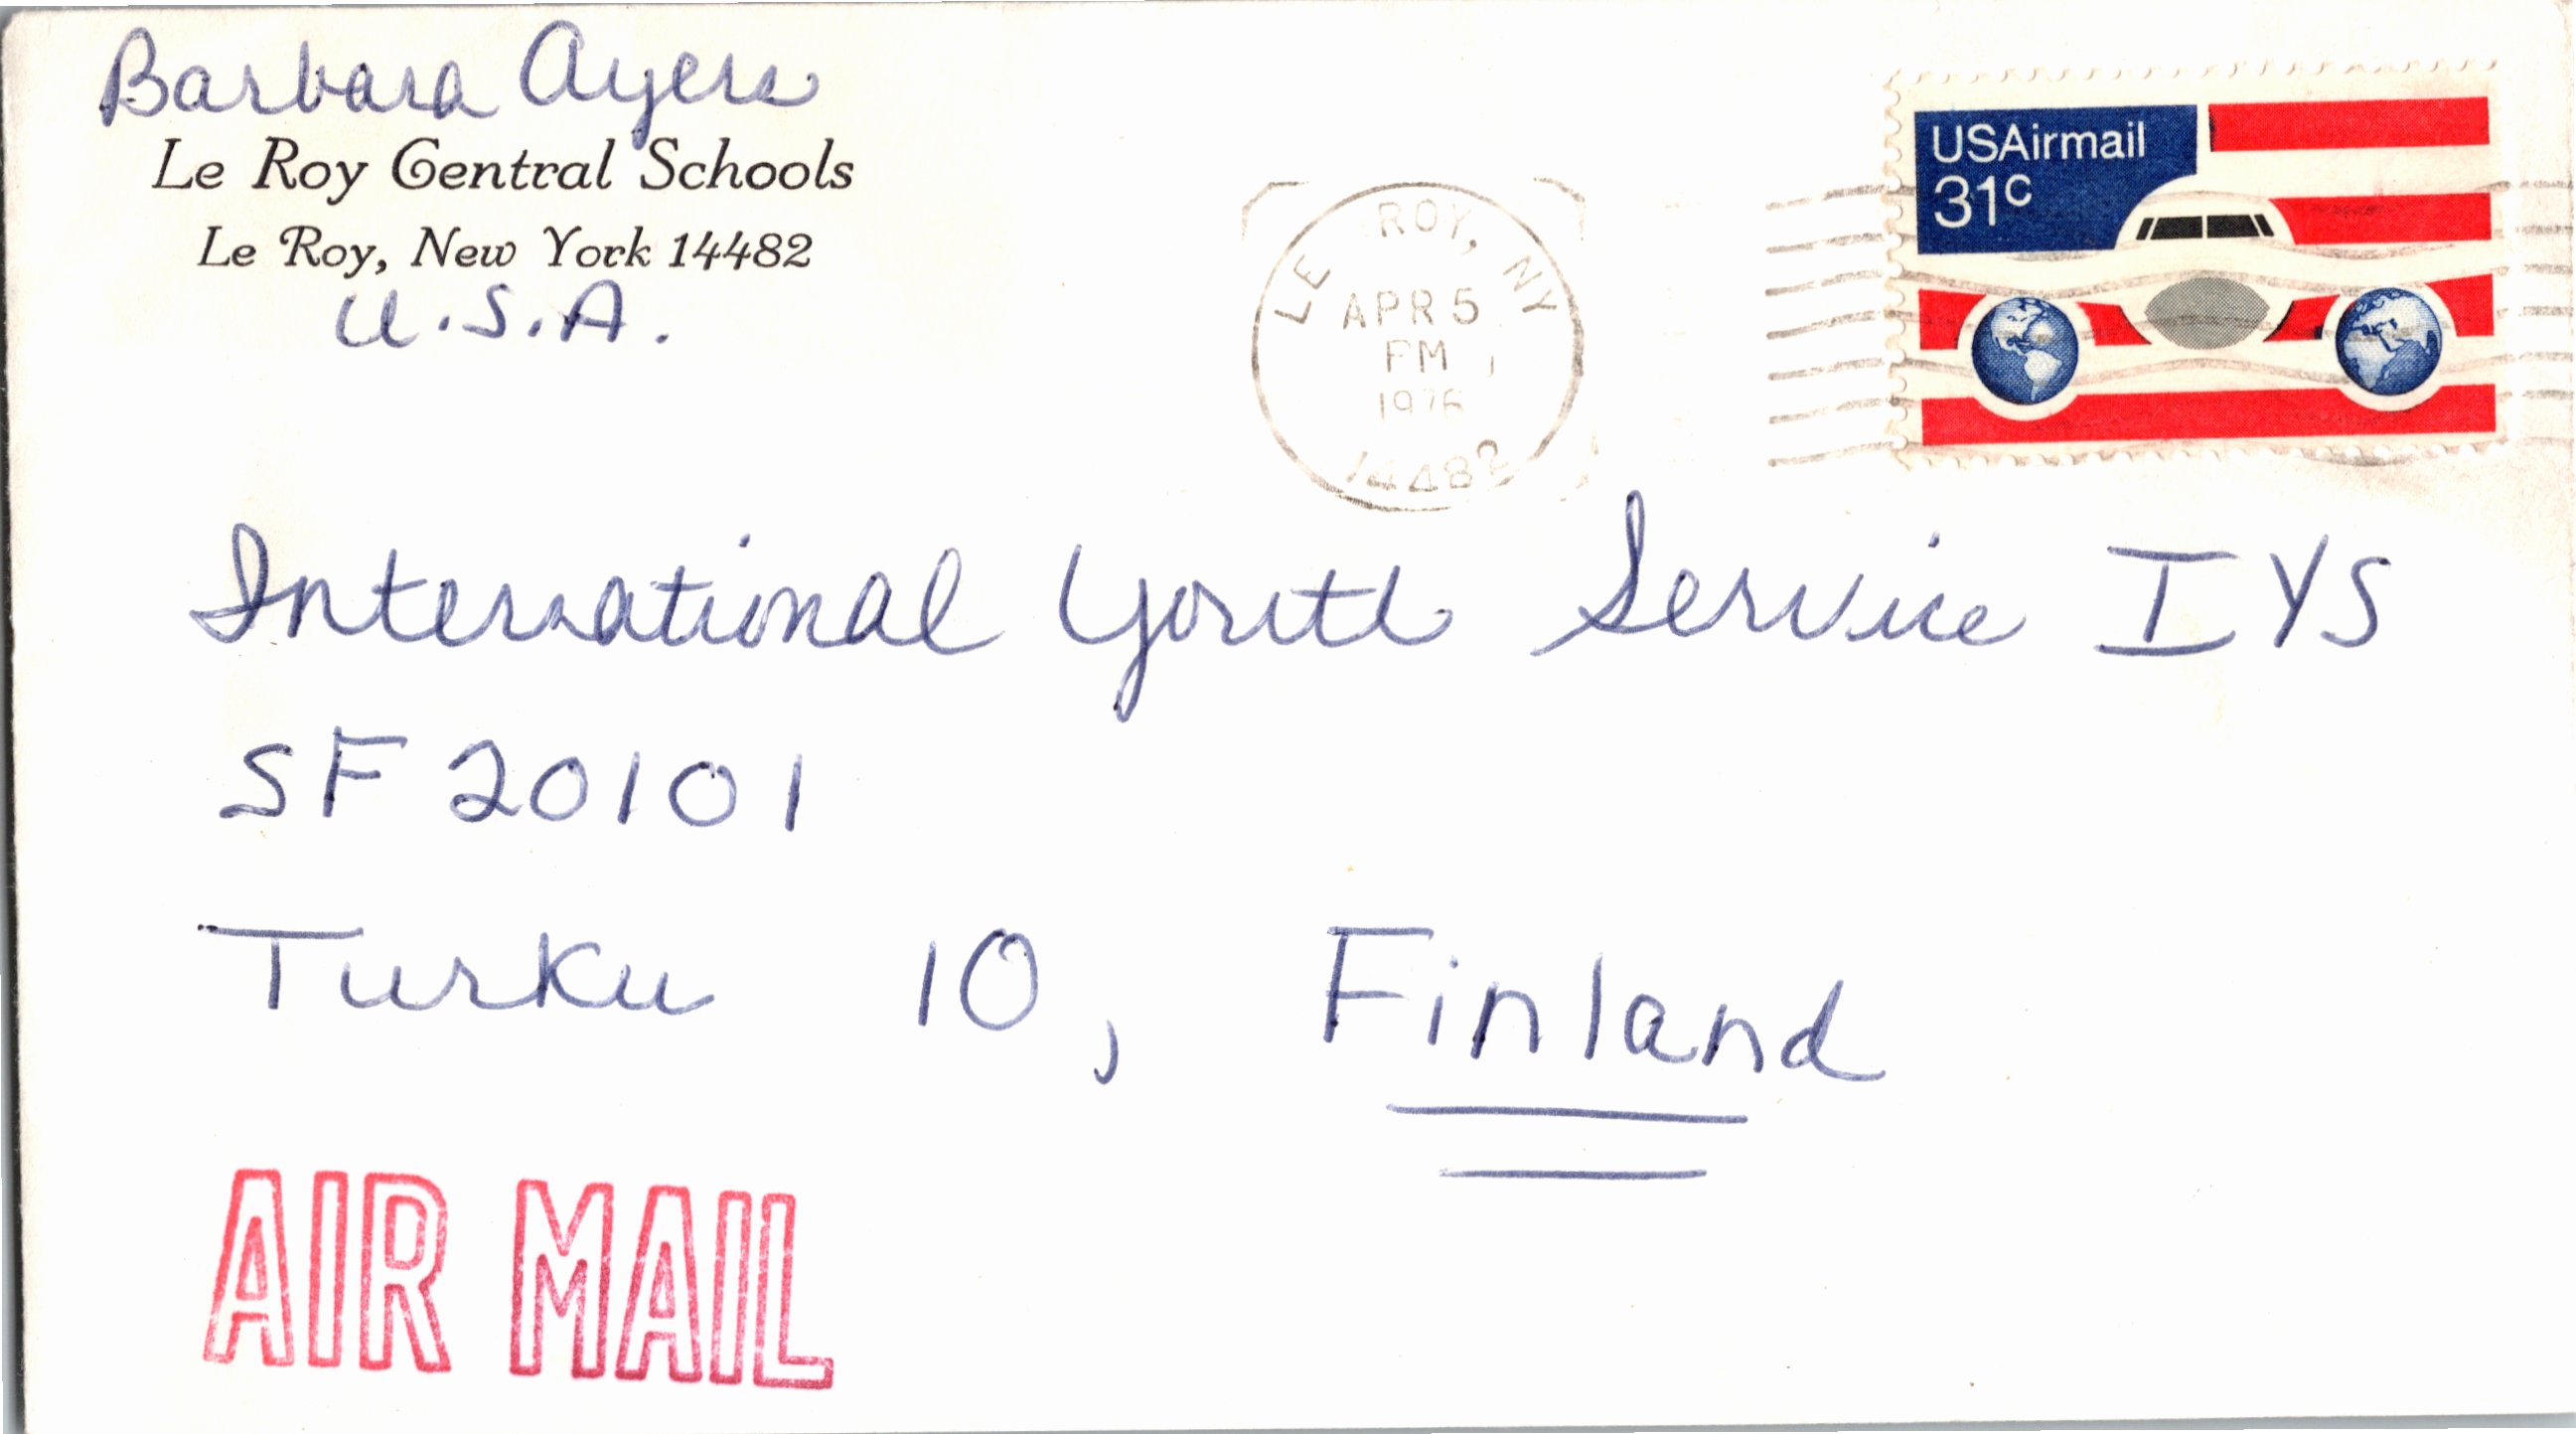 Barbara Ayers
Le Roy Central Schools
Le Roy, New York 14482
U.S.A.
LE ROY, NY
APR 5
PM
1976
14482
USAirmail
31c
International Youth Service IYS
SF 20101
Turku 10, Finland
AIR MAIL